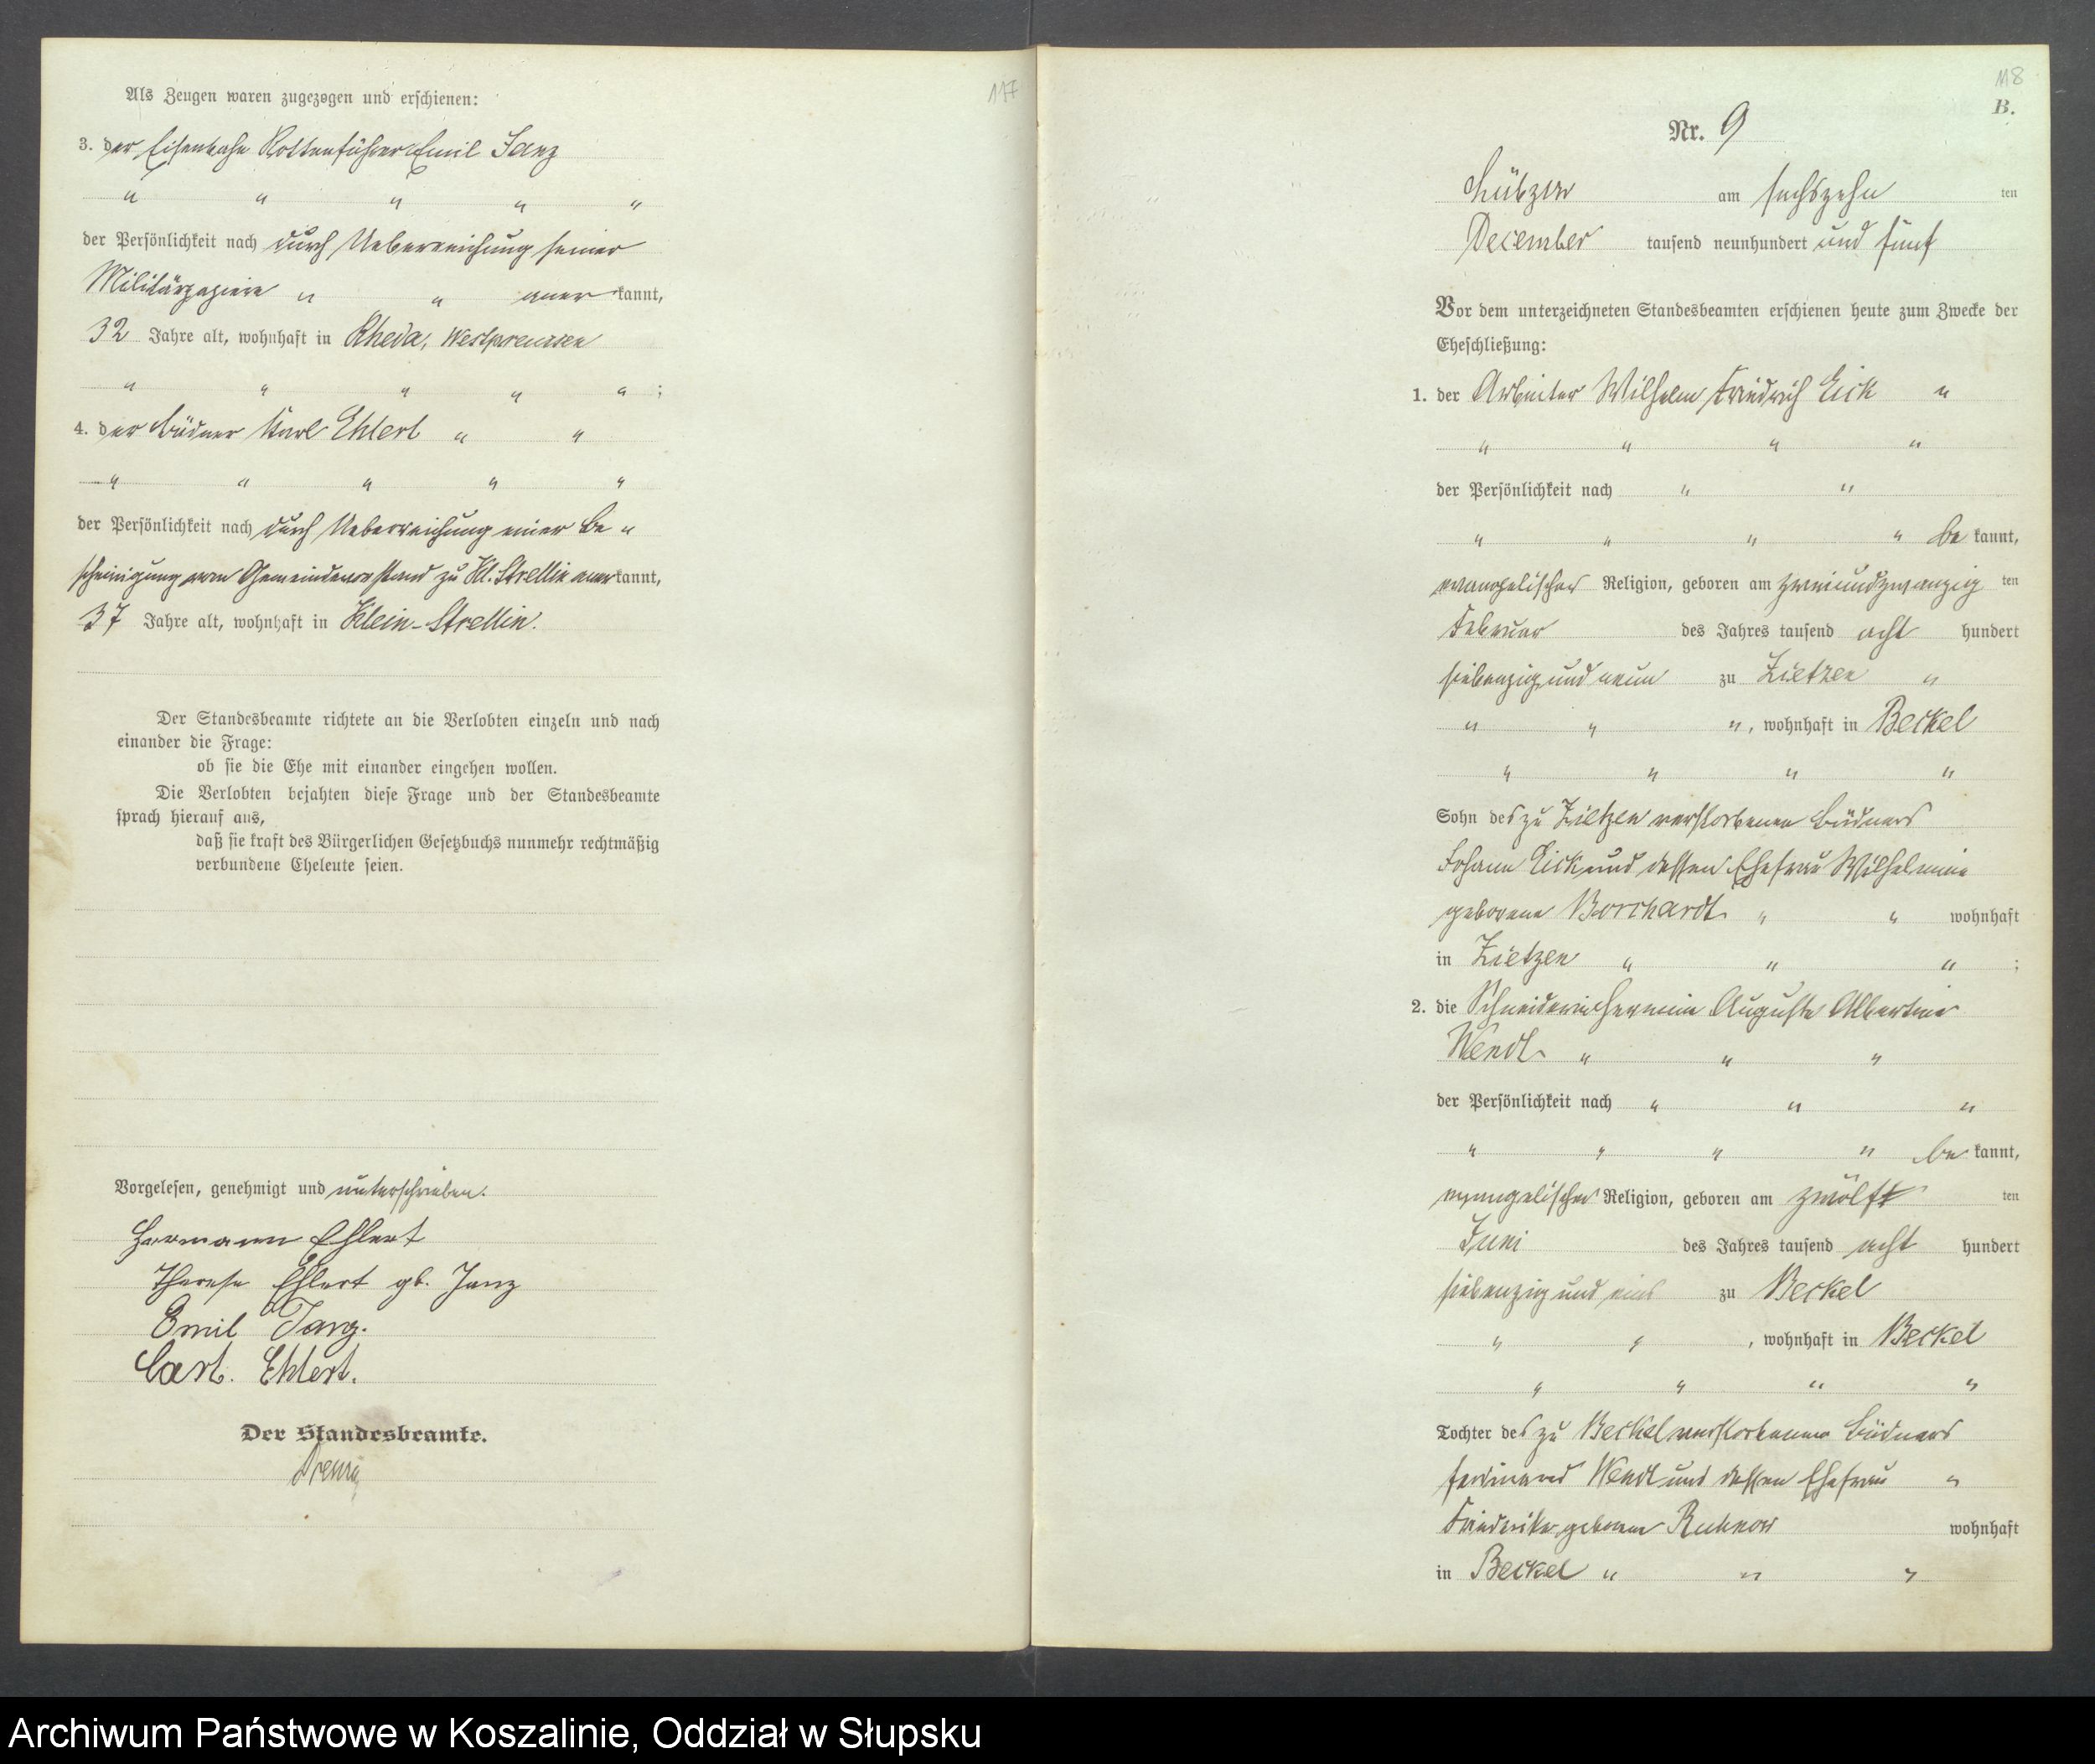 117
Als Zeugen waren zugezogen und erschienen:
3. der Eisenbahn Rottenführer Emil Janz
" " " " "
der Persönlichkeit nach durch Ueberreichung seiner
Militärpapiere " " aner kannt,
32 Jahre alt, wohnhaft in Rheda, Westpreussen
" " " " " ;
4. der Büdner Karl Ehlert " "
" " " " "
der Persönlichkeit nach durch Ueberreichung einer Be "
scheinigung vom Gemeindevorstand zu Kl. Strellin aner kannt,
37 Jahre alt, wohnhaft in Klein-Strellin.
Der Standesbeamte richtete an die Verlobten einzeln und nach
einander die Frage:
ob sie die Ehe mit einander eingehen wollen.
Die Verlobten bejahten diese Frage und der Standesbeamte
sprach hierauf aus,
daß sie kraft des Bürgerlichen Gesetzbuchs nunmehr rechtmäßig
verbundene Eheleute seien.
Vorgelesen, genehmigt und unterschrieben.
Hermann Ehlert
Therese Ehlert gb. Janz
Emil Janz.
Carl. Ehlert.
Der Standesbeamte.
118
B.
Nr. 9
Lübzow am sechszehn ten
December tausend neunhundert und fünf
Vor dem unterzeichneten Standesbeamten erschienen heute zum Zwecke der
Eheschließung:
1. der Arbeiter Wilhelm Friedrich Eick "
" " " "
der Persönlichkeit nach " "
" " " " be kannt,
evangelischer Religion, geboren am zweiundzwanzig ten
Februar des Jahres tausend acht hundert
siebenzig und neun zu Zietzen "
" " ", wohnhaft in Beckel
" " " "
Sohn des zu Zietzen verstorbenen Büdners
Johann Eick und dessen Ehefrau Wilhelmine
geborene Borchardt " " wohnhaft
in Zietzen " " " ;
2. die Schneiderin Hermine Auguste Albertine
Wendt " " "
der Persönlichkeit nach " " "
" " " " be kannt,
evangelischer Religion, geboren am zwölft ten
Juni des Jahres tausend acht hundert
siebenzig und eins zu Beckel
" " , wohnhaft in Beckel
" " " "
Tochter des zu Beckel verstorbenen Büdners
Ferdinand Wendt und dessen Ehefrau "
Friederike geborene Ruhnow wohnhaft
in Beckel " " "
Archiwum Państwowe w Koszalinie, Oddział w Słupsku